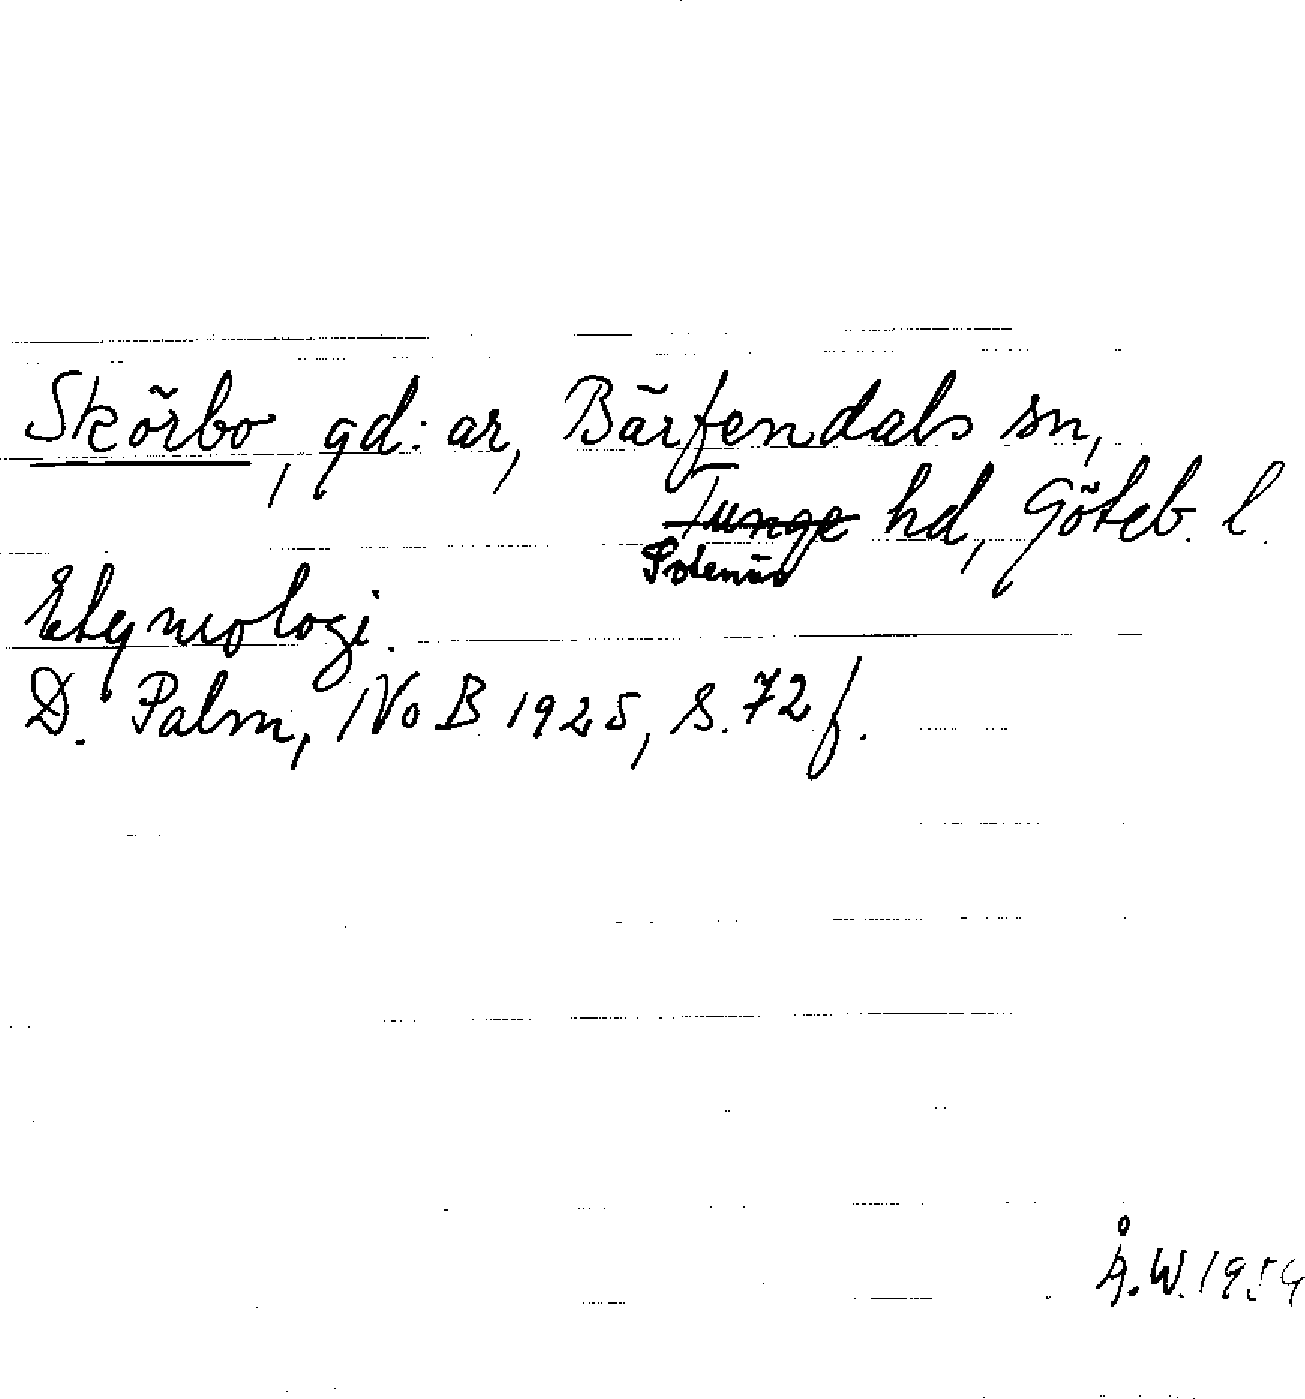 Skörbo, gd:ar, Bärfendals sn,
Tunge hd, Göteb. l.
Sotenäs
Etymologi.
D. Palm, NoB 1925, s. 72 f.
Å.W. 1959